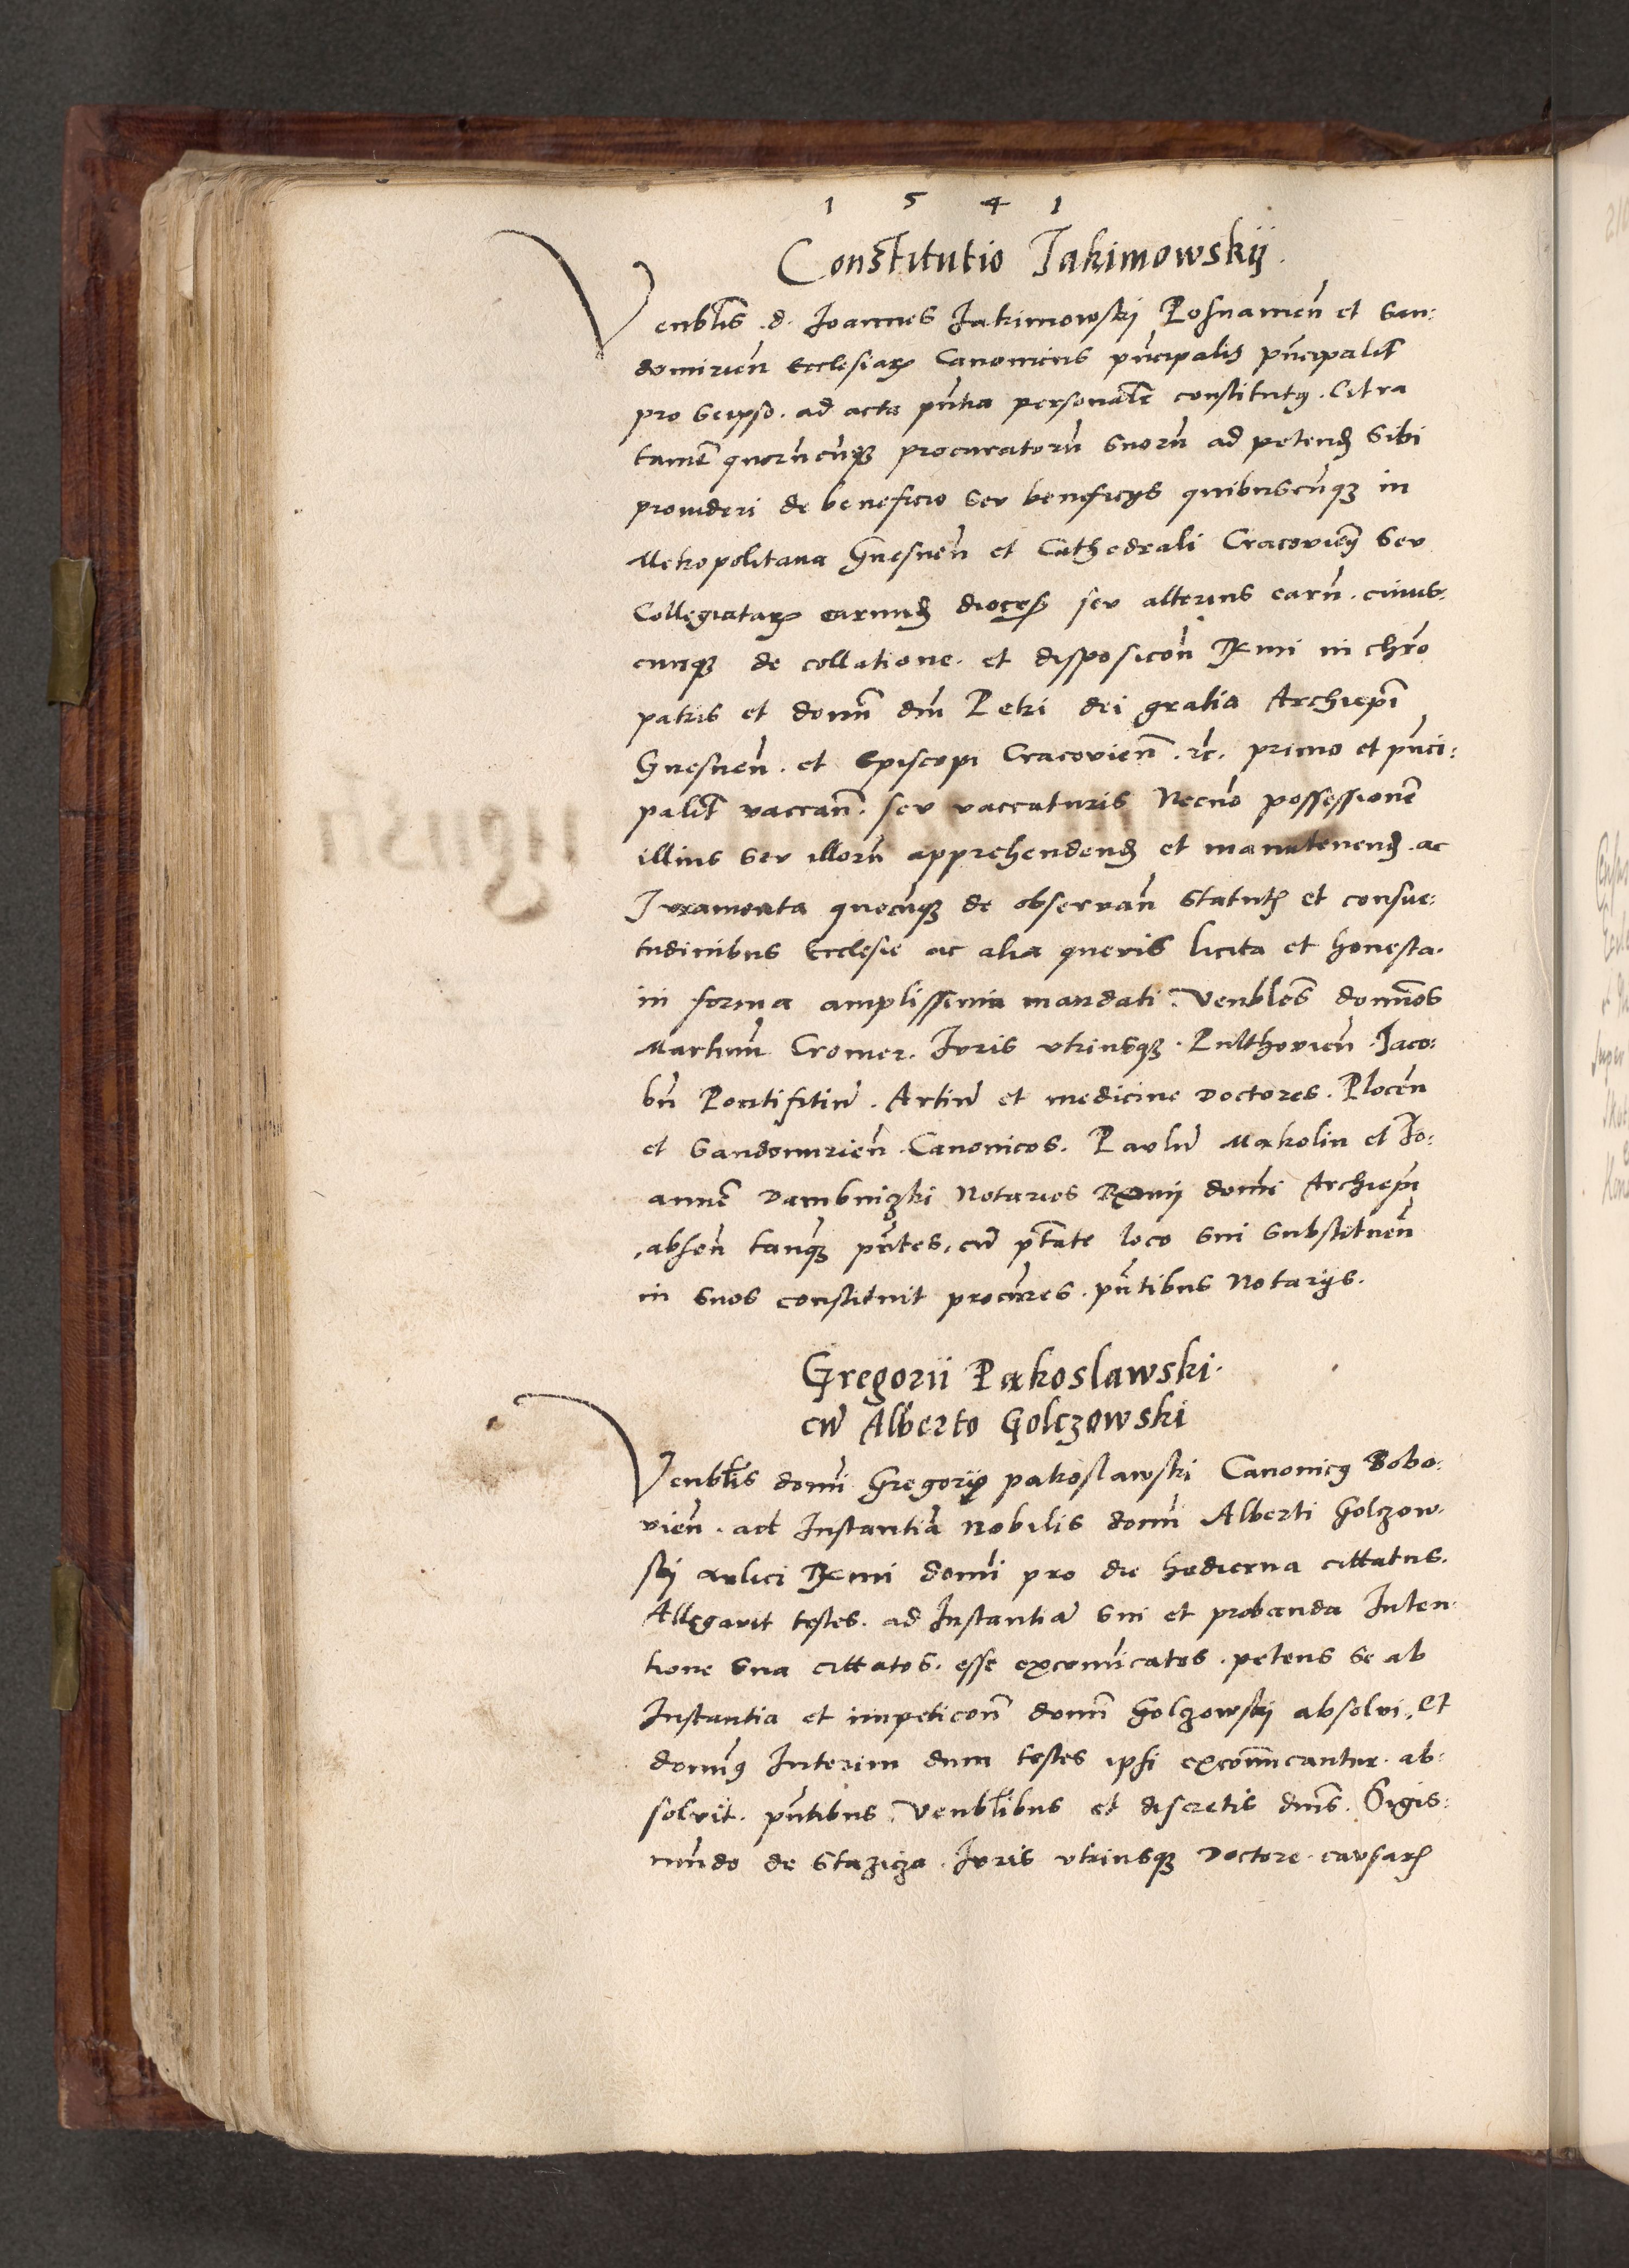 1 5 4 1
Constitutio Jakimowskij.
Venblis d. Joannes Jakimowskj Posnamen et San:
domirien Ecclesiarz Canonicus pncipalis pncipalit
pro Seipso. ad acta pntia personalr constitutus. Citra
tamen quorucunqz procuratoru Suoru ad petend Sibi
provideri de beneficio Seu beneficys quibuscunqz in
Metropolitana Gnesnen et Cathedrali Cracovien Seu
Collegiatarz earund dioces seu alterius earu. cuius.
cunqz de collatione. et disposicon Rmi in chro
patris et domi dni Petri dei gratia Archiepi
Gnesnen. et Episcopi Cracovien. rc. primo et pnci:
palit vaccan. seu vaccaturis Necno possessione
illius Seu illoru apprehendend et manutenend. ac
Juramenta quecunqz de observan Statutz et consue:
tudinibus Ecclesie ac alia quevis licita et honesta.
in forma amplissima mandati. Venbles domos
Martinu Cromer. Juris utriusqz. Pulthovien. Jaco:
bu Pontifitiu. Artiu et medicine Doctores. Plocen
et Sandomirien. Canonicos. Paulu Makolin et Jo:
anne Dambniczki Notarios Rmij domi Archiepi
absen tanqz pntes, cu ptate loco Sui Substituen
in Suos constituit procures. pntibus Notarys.
Gregorii Pakoslawski.
cu Alberto Golczowski
Venblis domi Gregorij pakoslawski Canonicus Bobo:
vien. ad Instantia Nobilis domi Alberti Golczow.
skj aulici Rmi domi pro die hodierna cittatus.
Allegavit testes. ad Instantia Sui et probanda Inten.
tione Sua cittatos. esse excomicatos. petens Se ab
Instantia et impeticon domi Golczowskj absolvi, Et
domus Interim dum testes ipsi excomicantur. ab:
solvit. pntibus. Venblibus et discretis dnis. Sigis:
mundo de Stazicza. Juris utriusqz Doctore. causarz